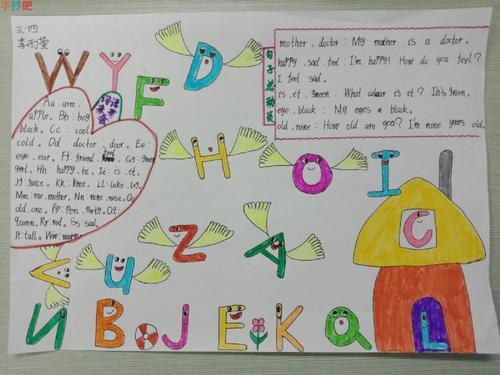 手抄吧
三.四
李雨萱
W Y F D
句子总动员
mother. doctor: My mother is a doctor.
happy. sad. feel: I'm happy! How do you feel?
I feel sad.
is. it. green: What colour is it? It's green.
eye. black: My eyes is black.
old. nine: How old are you? I'm nine years old.
Aa: arm.
apple. Bb: boy
black. Cc: cool
cold. Dd: doctor. door. Ee:
eye. ear. Ff: friend. Gg: Green
girl. Hh: happy. hi. Ii: is. it.
Jj: juice. Kk: knee. Ll: lake. leg.
Mm: me. mother. Nn: nine. nose. Oo
old. one. Pp: Pen. Party. Qq:
queen. Rr: red. Ss: sad.
Tt: tall. Ww:
H O I
C
V U Z A
N B J E K Q L